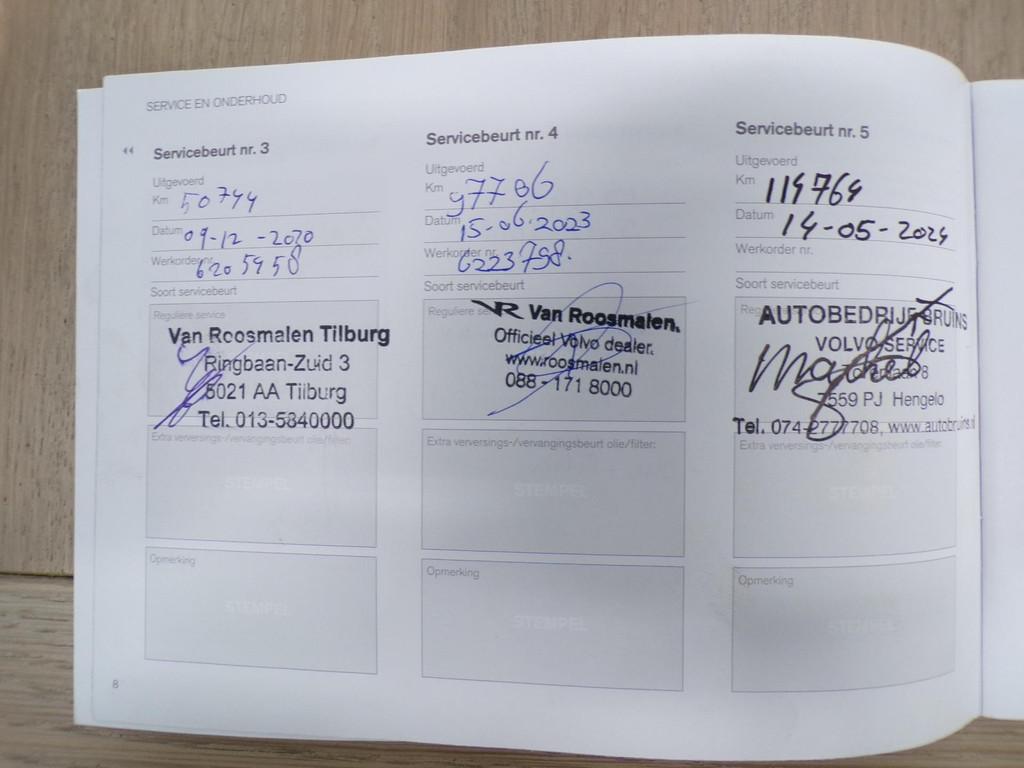 SERVICE EN ONDERHOUD
Servicebeurt nr. 3
Uitgevoerd
Km 50744
Datum 09-12-2020
Werkorder nr. 6205958
Soort servicebeurt
Reguliere service
Van Roosmalen Tilburg
Ringbaan-Zuid 3
5021 AA Tilburg
Tel. 013-5840000
Extra verversings-/vervangingsbeurt olie/filter:
STEMPEL
Opmerking
STEMPEL
Servicebeurt nr. 4
Uitgevoerd
Km 97786
Datum 15-06-2023
Werkorder nr. 6223798.
Soort servicebeurt
Reguliere
Van Roosmalen.
Officieel Volvo dealer.
www.roosmalen.nl
088-171 8000
Extra verversings-/vervangingsbeurt olie/filter:
STEMPEL
Opmerking
STEMPEL
Servicebeurt nr. 5
Uitgevoerd
Km 119769
Datum 14-05-2024
Werkorder nr.
Soort servicebeurt
AUTOBEDRIJF BRUINS
VOLVO SERVICE
8
7559 PJ Hengelo
Tel. 074-2777708, www.autobruins.nl
Extra verversings-/vervangingsbeurt olie/filter:
STEMPEL
Opmerking
STEMPEL
8